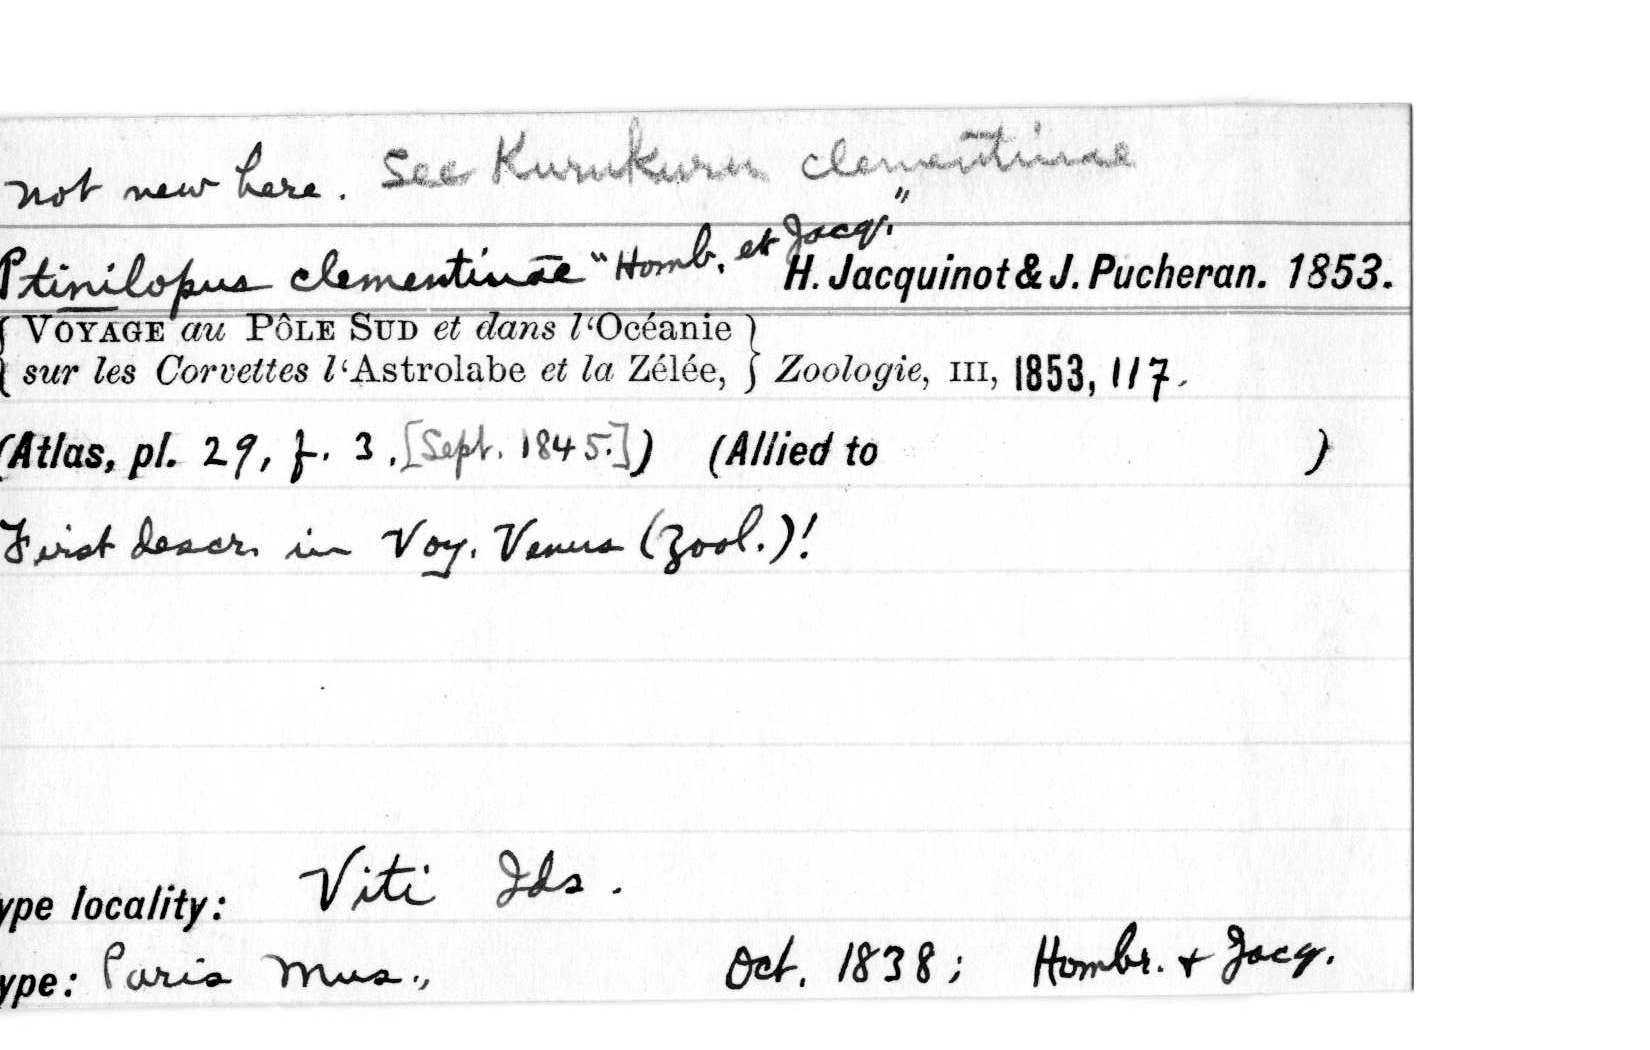 not new here. See Kurukuru clementinae
Ptinilopus clementinae "Homb. et Jacq."
H. Jacquinot & J. Pucheran. 1853.
{ VOYAGE au PÔLE SUD et dans l‘Océanie }
{ sur les Corvettes l‘Astrolabe et la Zélée, } Zoologie, III, 1853, 117.
(Atlas, pl. 29, f. 3. [Sept. 1845.]) (Allied to )
First descr. in Voy. Venus (Zool.)!
ype locality: Viti Ids.
ype: Paris Mus., Oct. 1838; Hombr. + Jacq.